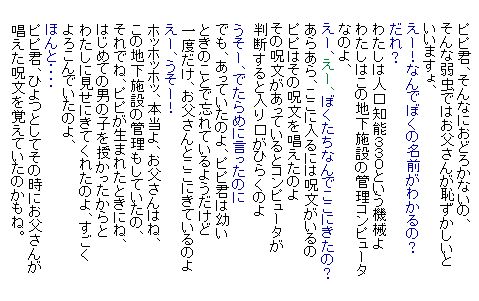 ビビ君、そんなにおどろかないの、
そんな弱虫ではお父さんが恥ずかしいと
いいますよ、
えー！なんでぼくの名前がわかるの？
だれ？
わたしは人口知能３９０という機械よ
わたしはこの地下施設の管理コンピュータ
なのよ、
えー、えー、ぼくたちなんでここにきたの？
あらあら、ここに入るには呪文がいるの
ビビはその呪文を唱えたのよ
その呪文があっているとコンピュータが
判断すると入り口がひらくのよ
うそー、でたらめに言ったのに
でも、あっていたのよ、ビビ君は幼い
ときのことで忘れているようだけど
一度だけ、お父さんとここにきているのよ
えー、うそー！
ホッホッホッ、本当よ、お父さんはね、
この地下施設の管理もしていたの、
それでね、ビビが生まれたときにね、
はじめての男の子を授かったからと
わたしに見せにきてくれたのよ、すごく
よろこんでいたのよ、
ほんと・・・
ビビ君、ひょっとしてその時にお父さんが
唱えた呪文を覚えていたのかもね。